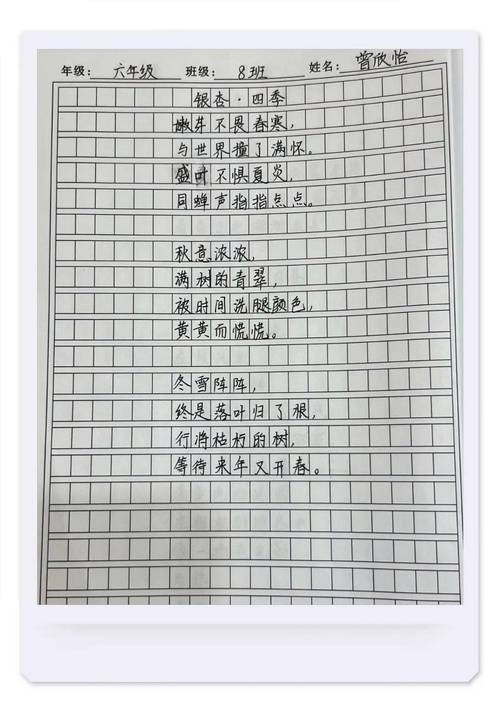 年级：六年级 班级：8班 姓名：曾欣怡
银杏·四季
嫩芽不畏春寒，
与世界撞了满怀。
盛叶不惧夏炎，
同蝉声指指点点。
秋意浓浓，
满树的青翠，
被时间洗腿颜色，
黄黄而慌慌。
冬雪阵阵，
终是落叶归了根，
行将枯朽的树，
等待来年又开春。